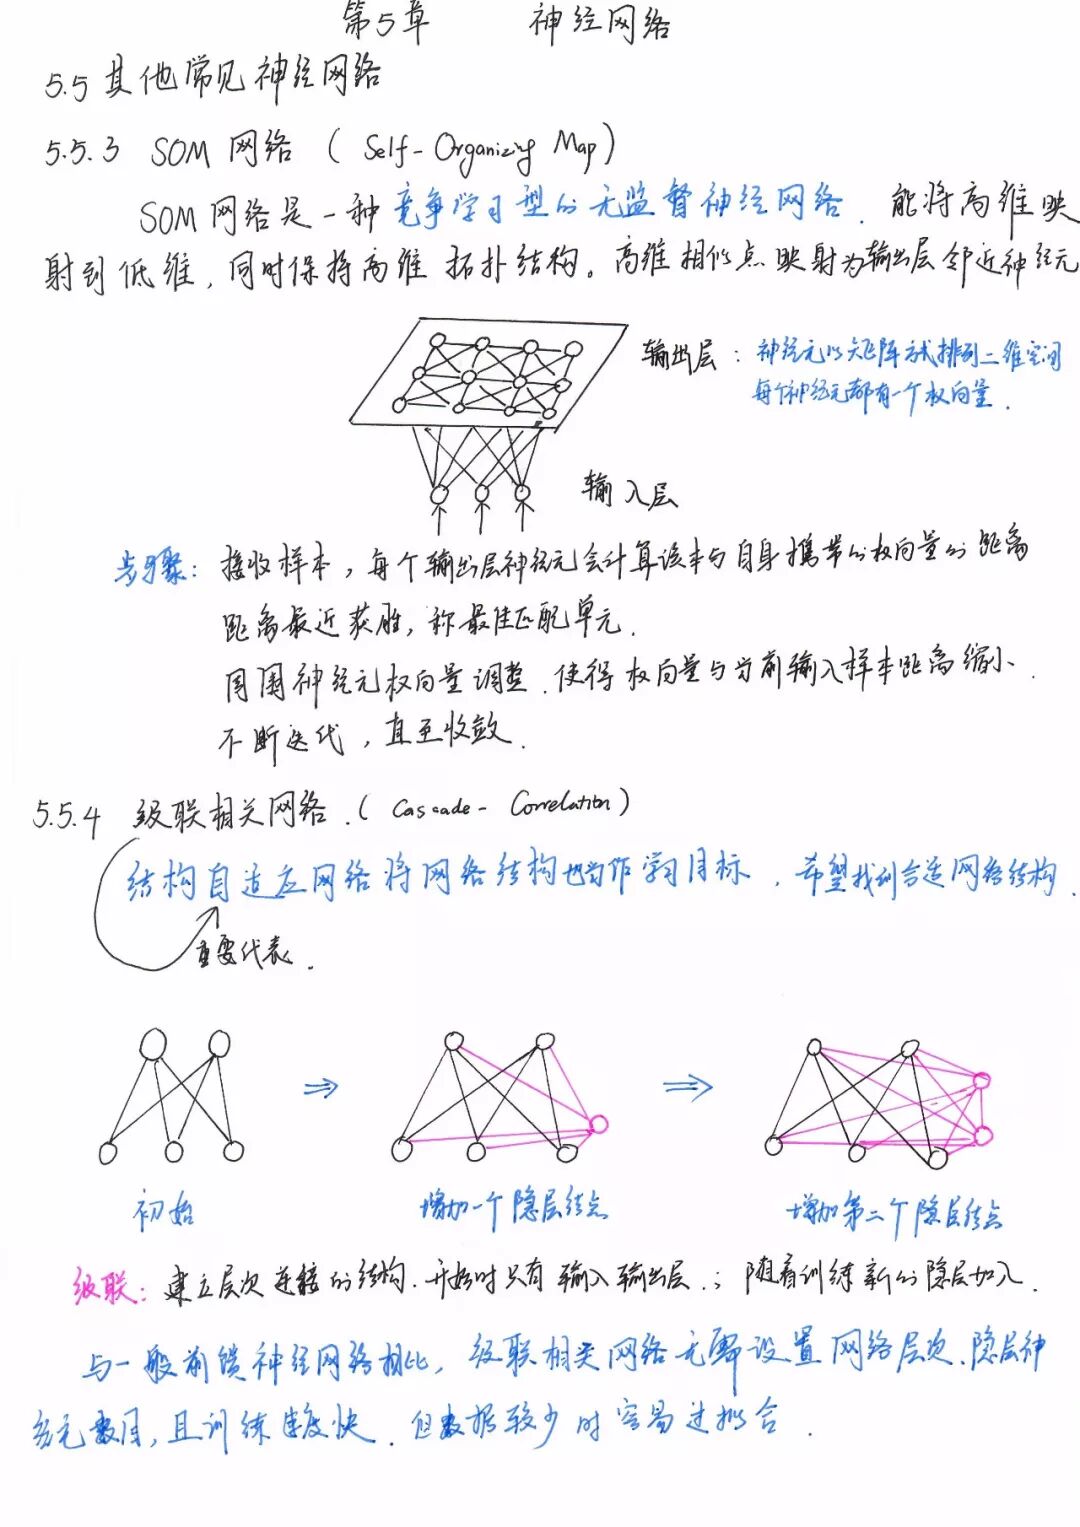 第5章 神经网络
5.5 其他常见神经网络
5.5.3 SOM 网络 (Self-Organizing Map)
SOM 网络是一种竞争学习型的无监督神经网络. 能将高维映
射到低维, 同时保持高维拓扑结构。高维相似点映射为输出层邻近神经元
输出层: 神经元以矩阵方式排列二维空间
每个神经元都有一个权向量.
输入层
步骤: 接收样本, 每个输出层神经元会计算该样本与自身携带的权向量的距离
距离最近获胜, 称最佳匹配单元.
周围神经元权向量调整. 使得权向量与当前输入样本距离缩小.
不断迭代, 直至收敛.
5.5.4 级联相关网络. (Cascade-Correlation)
结构自适应网络将网络结构也当作学习目标, 希望找到合适网络结构.
重要代表.
初始
增加一个隐层结点
增加第二个隐层结点
级联: 建立层次连接的结构. 开始时只有输入输出层.; 随着训练新的隐层加入.
与一般前馈神经网络相比, 级联相关网络无需设置网络层次、隐层神
经元数目, 且训练速度快. 但数据较少时容易过拟合.